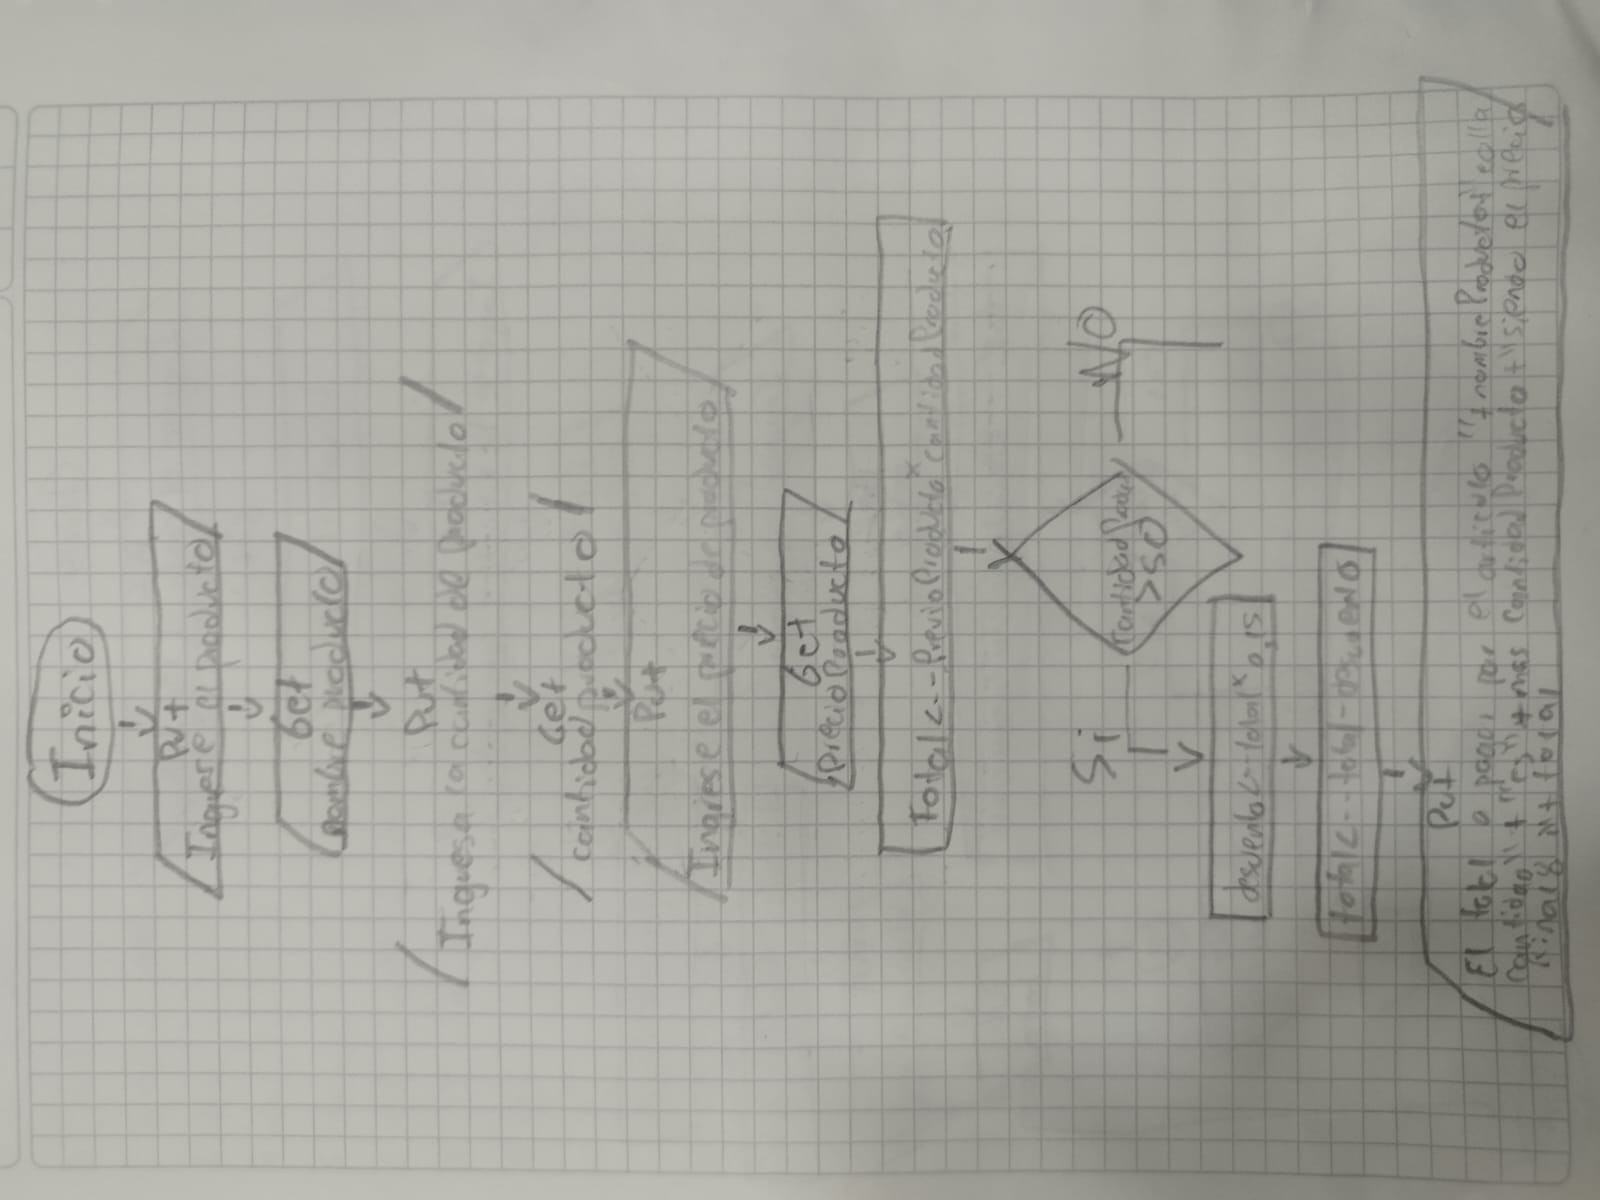 Inicio
Put
Ingrese el producto
Get
nombre producto
Put
Ingresa la cantidad del producto
Get
cantidad producto
Put
Ingrese el precio de producto
Get
precioProducto
Total <-- PrecioProducto * cantidadProducto
cantidadProduc
>50
Si
NO
descuento <-- total * 0,15
total <-- total -
Put
El total a pagar por el articulo "+nombreProducto+
cantidad "+ +mas cantidadProducto+" siendo el precio
total